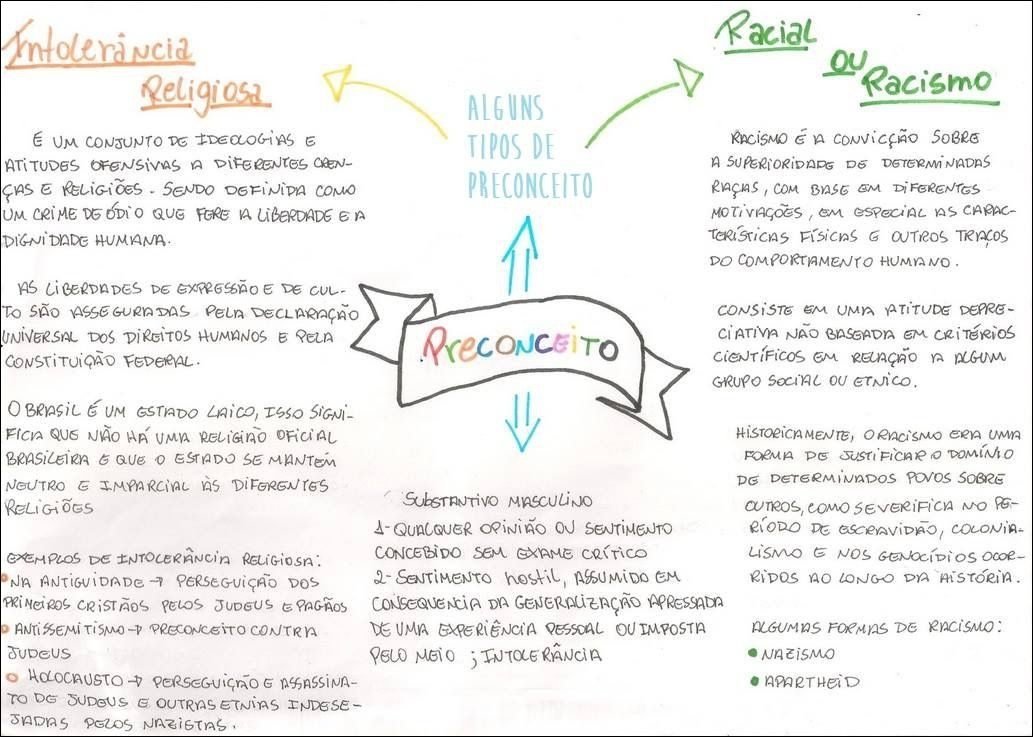 Intolerância
Religiosa
É UM CONJUNTO DE IDEOLOGIAS E
ATITUDES OFENSIVAS A DIFERENTES CREN-
ÇAS E RELIGIÕES. SENDO DEFINIDA COMO
UM CRIME DE ÓDIO QUE FERE A LIBERDADE E A
DIGNIDADE HUMANA.
AS LIBERDADES DE EXPRESSÃO E DE CUL-
TO SÃO ASSEGURADAS PELA DECLARAÇÃO
UNIVERSAL DOS DIREITOS HUMANOS E PELA
CONSTITUIÇÃO FEDERAL.
O BRASIL É UM ESTADO LAICO, ISSO SIGNI-
FICA QUE NÃO HÁ UMA RELIGIÃO OFICIAL
BRASILEIRA E QUE O ESTADO SE MANTÉM
NEUTRO E IMPARCIAL ÀS DIFERENTES
RELIGIÕES
EXEMPLOS DE INTOLERÂNCIA RELIGIOSA:
• NA ANTIGUIDADE → PERSEGUIÇÃO DOS
PRIMEIROS CRISTÃOS PELOS JUDEUS E PAGÃOS
• ANTISSEMITISMO → PRECONCEITO CONTRA
JUDEUS
• HOLOCAUSTO → PERSEGUIÇÃO E ASSASSINA-
TO DE JUDEUS E OUTRAS ETNIAS INDESE-
JADAS PELOS NAZISTAS.
ALGUNS
TIPOS DE
PRECONCEITO
PRECONCEITO
SUBSTANTIVO MASCULINO
1- QUALQUER OPINIÃO OU SENTIMENTO
CONCEBIDO SEM EXAME CRÍTICO
2- SENTIMENTO hostil, ASSUMIDO EM
CONSEQUENCIA DA GENERALIZAÇÃO APRESSADA
DE UMA EXPERIÊNCIA PESSOAL OU IMPOSTA
PELO MEIO ; INTOLERÂNCIA
Racial
ou
Racismo
RACISMO É A CONVICÇÃO SOBRE
A SUPERIORIDADE DE DETERMINADAS
RAÇAS, COM BASE EM DIFERENTES
MOTIVAÇÕES, EM ESPECIAL AS CARAC-
TERÍSTICAS FÍSICAS E OUTROS TRAÇOS
DO COMPORTAMENTO HUMANO.
CONSISTE EM UMA ATITUDE DEPRE-
CIATIVA NÃO BASEADA EM CRITÉRIOS
CIENTÍFICOS EM RELAÇÃO A ALGUM
GRUPO SOCIAL OU ETNICO.
HISTORICAMENTE, O RACISMO ERA UMA
FORMA DE JUSTIFICAR O DOMÍNIO
DE DETERMINADOS POVOS SOBRE
OUTROS, COMO SE VERIFICA NO PE-
RÍODO DE ESCRAVIDÃO, COLONIA-
LISMO E NOS GENOCÍDIOS OCOR-
RIDOS AO LONGO DA HISTÓRIA.
ALGUMAS FORMAS DE RACISMO:
• NAZISMO
• APARTHEID